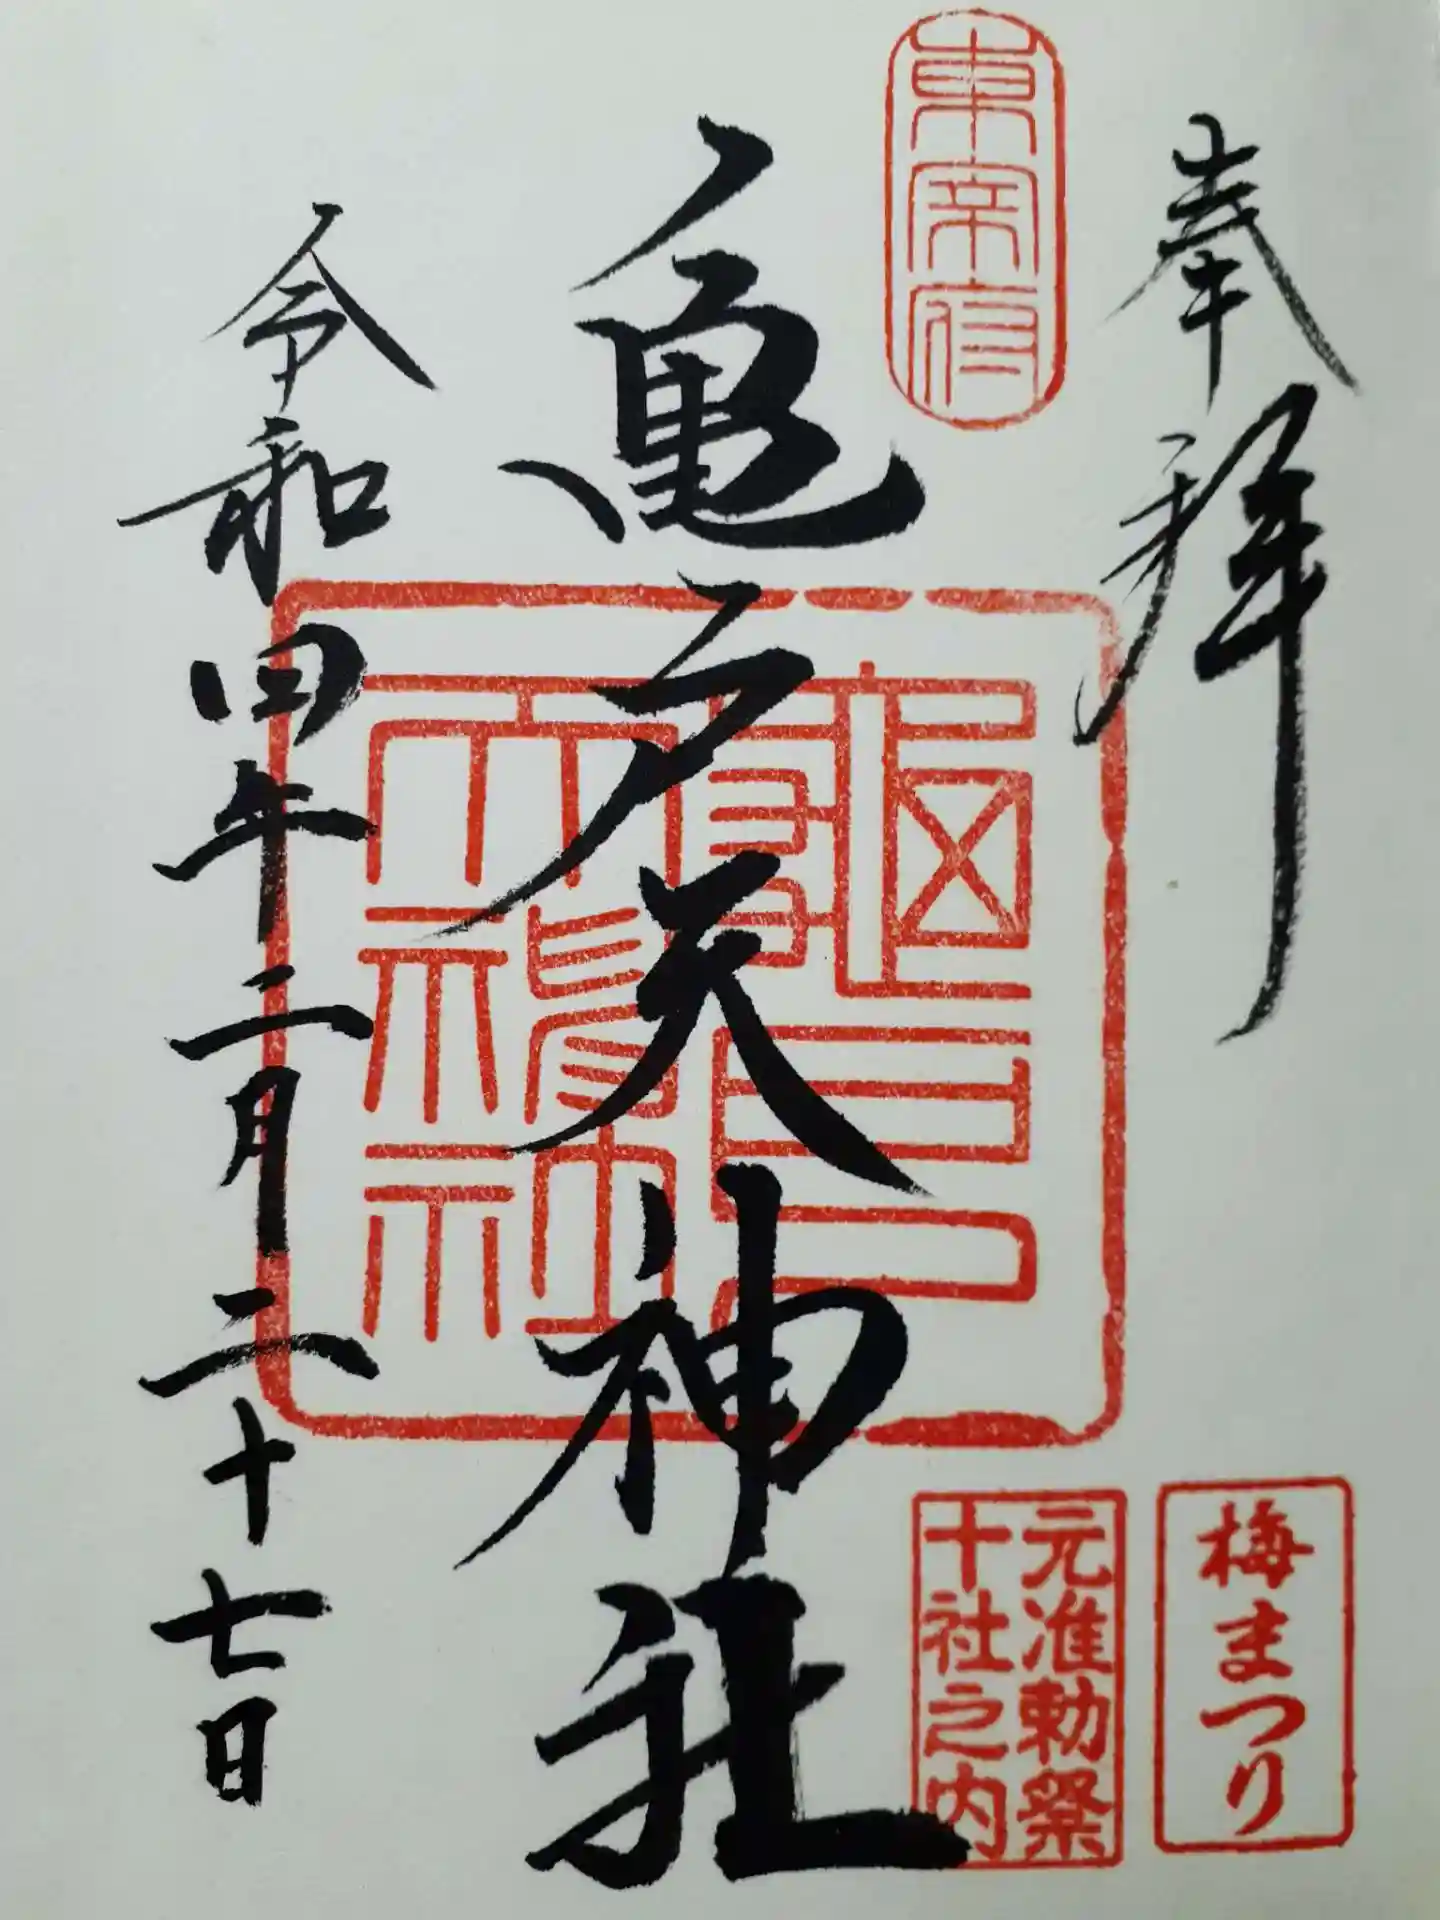 奉拝
東宰府
亀戸天神社
令和四年二月二十七日
龜戸
天神社
梅まつり
元准勅祭
十社之内